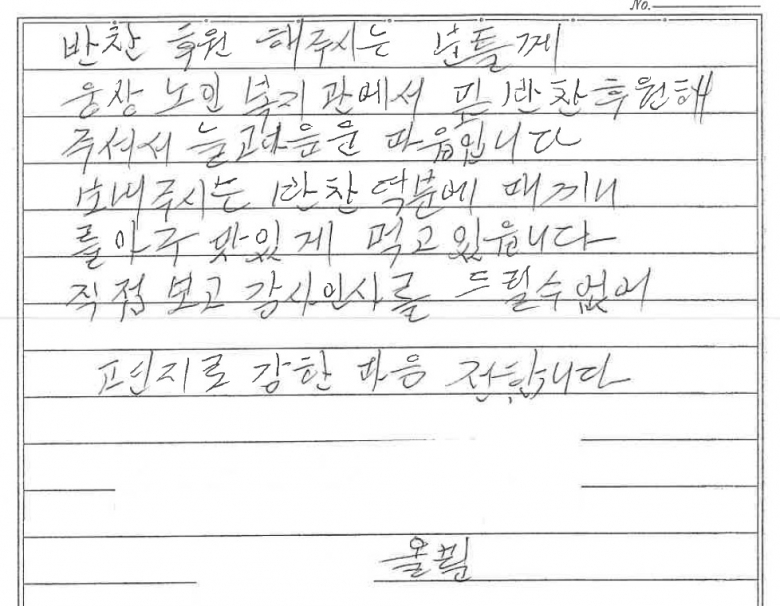 No.
반찬 후원 해주시는 분들께
웅상 노인 복지관에서 반찬후원해
주셔서 늘고마운 마음입니다
보내주시는 반찬 덕분에 매끼니
를아주 맛있게 먹고있읍니다
직접 보고 감사인사를 드릴수없어
편지로 감한 마음 전합니다
올림